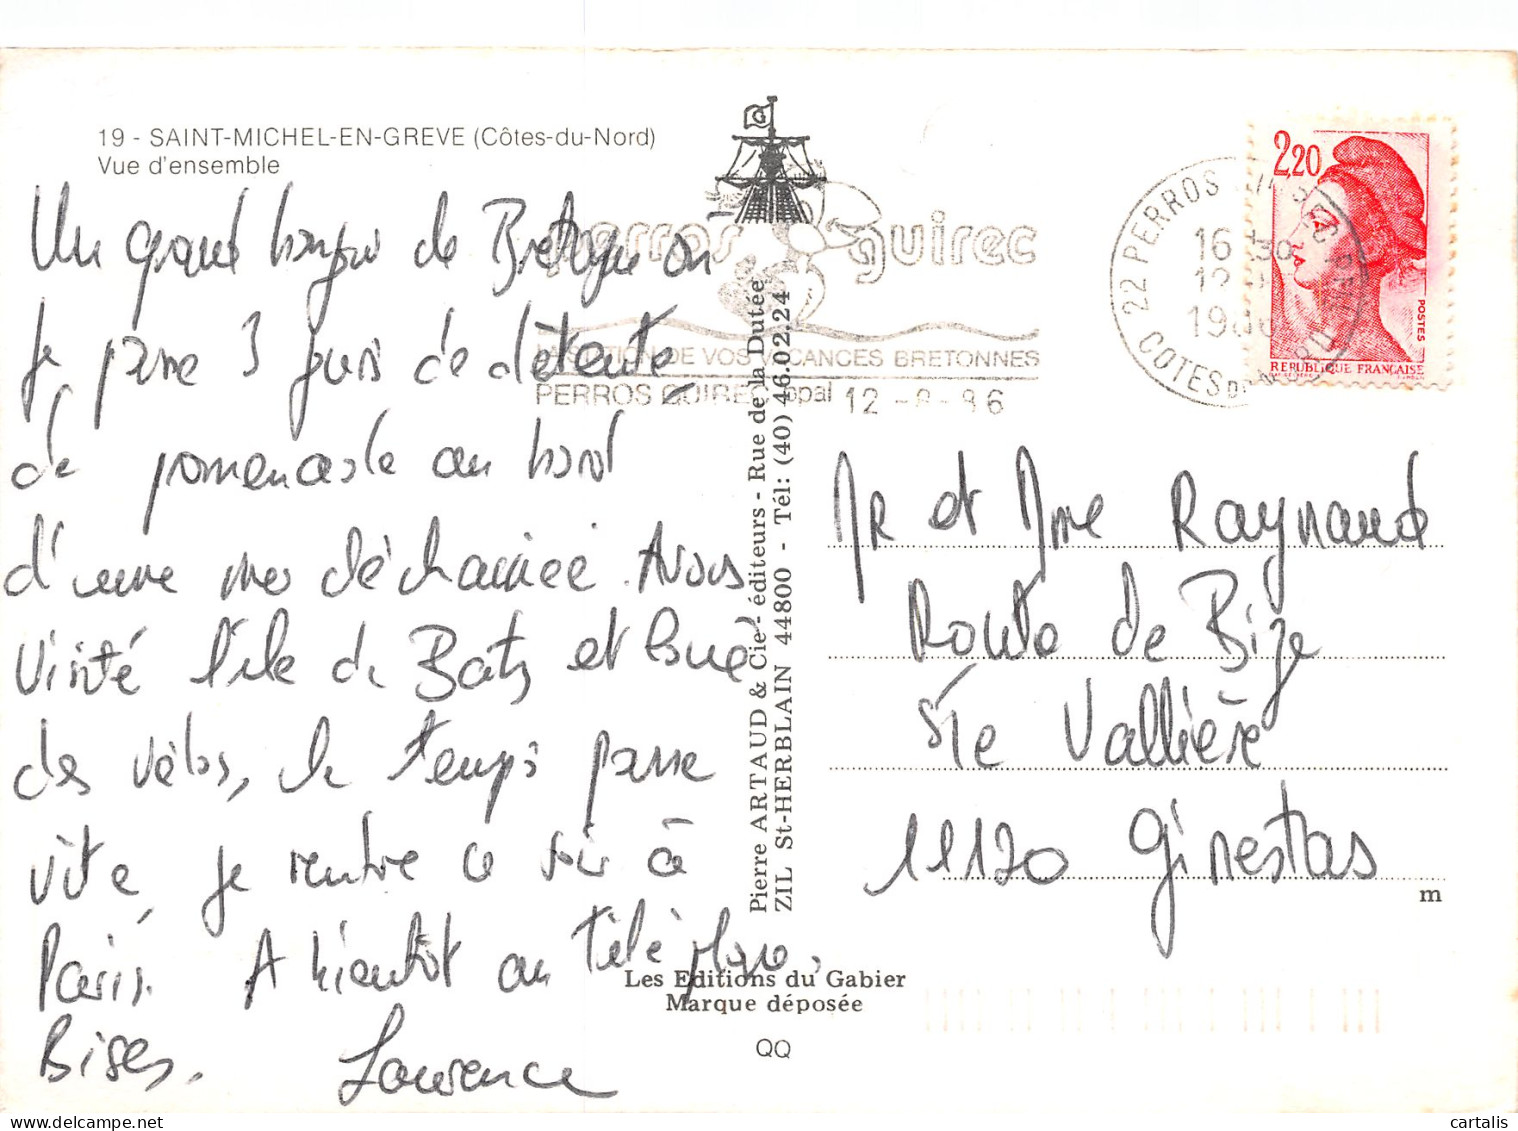 19 - SAINT-MICHEL-EN-GREVE (Côtes-du-Nord)
Vue d'ensemble
Un grand bonjour de Bretagne où
Je passe 3 jours de détente
de promenade au bord
d'une mer déchainée. Avons
visité l'ile de Batz et loué
des vélos, le temps passe
vite, je rentre ce soir à
Paris. A bientôt au téléphone.
Bises. Laurence
Pierre ARTAUD & Cie - éditeurs - Rue de la Dutée
ZIL St-HERBLAIN 44800 - Tél: (40) 46.02.24
Les Editions du Gabier
Marque déposée
QQ
G
perros guirec
LA STATION DE VOS VACANCES BRETONNES
PERROS GUIREC ppal 12 -8-86
22 PERROS
COTES DU NORD
16 30
12
1986
2,20
POSTES
REPUBLIQUE FRANÇAISE
Mr et Mme Raynaud
Route de Bize
Ste Vallière
11120 Ginestas
m
cartalis